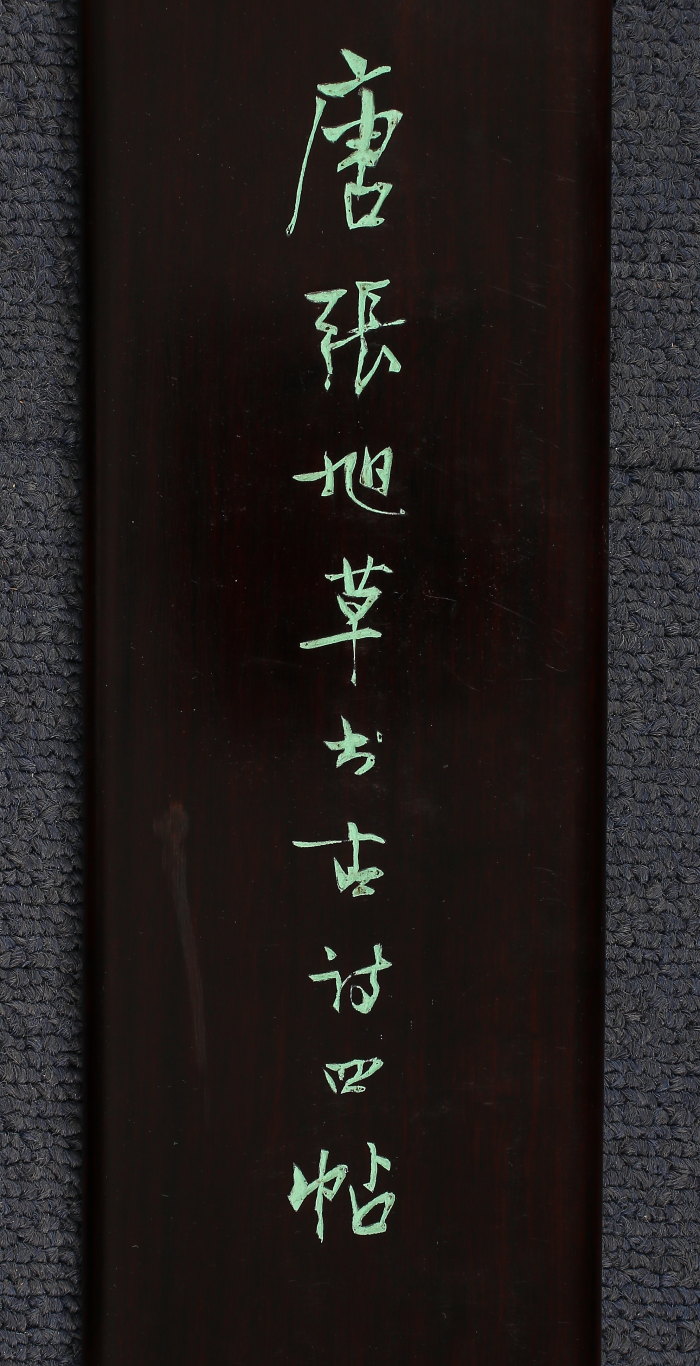 唐張旭草书古诗四帖